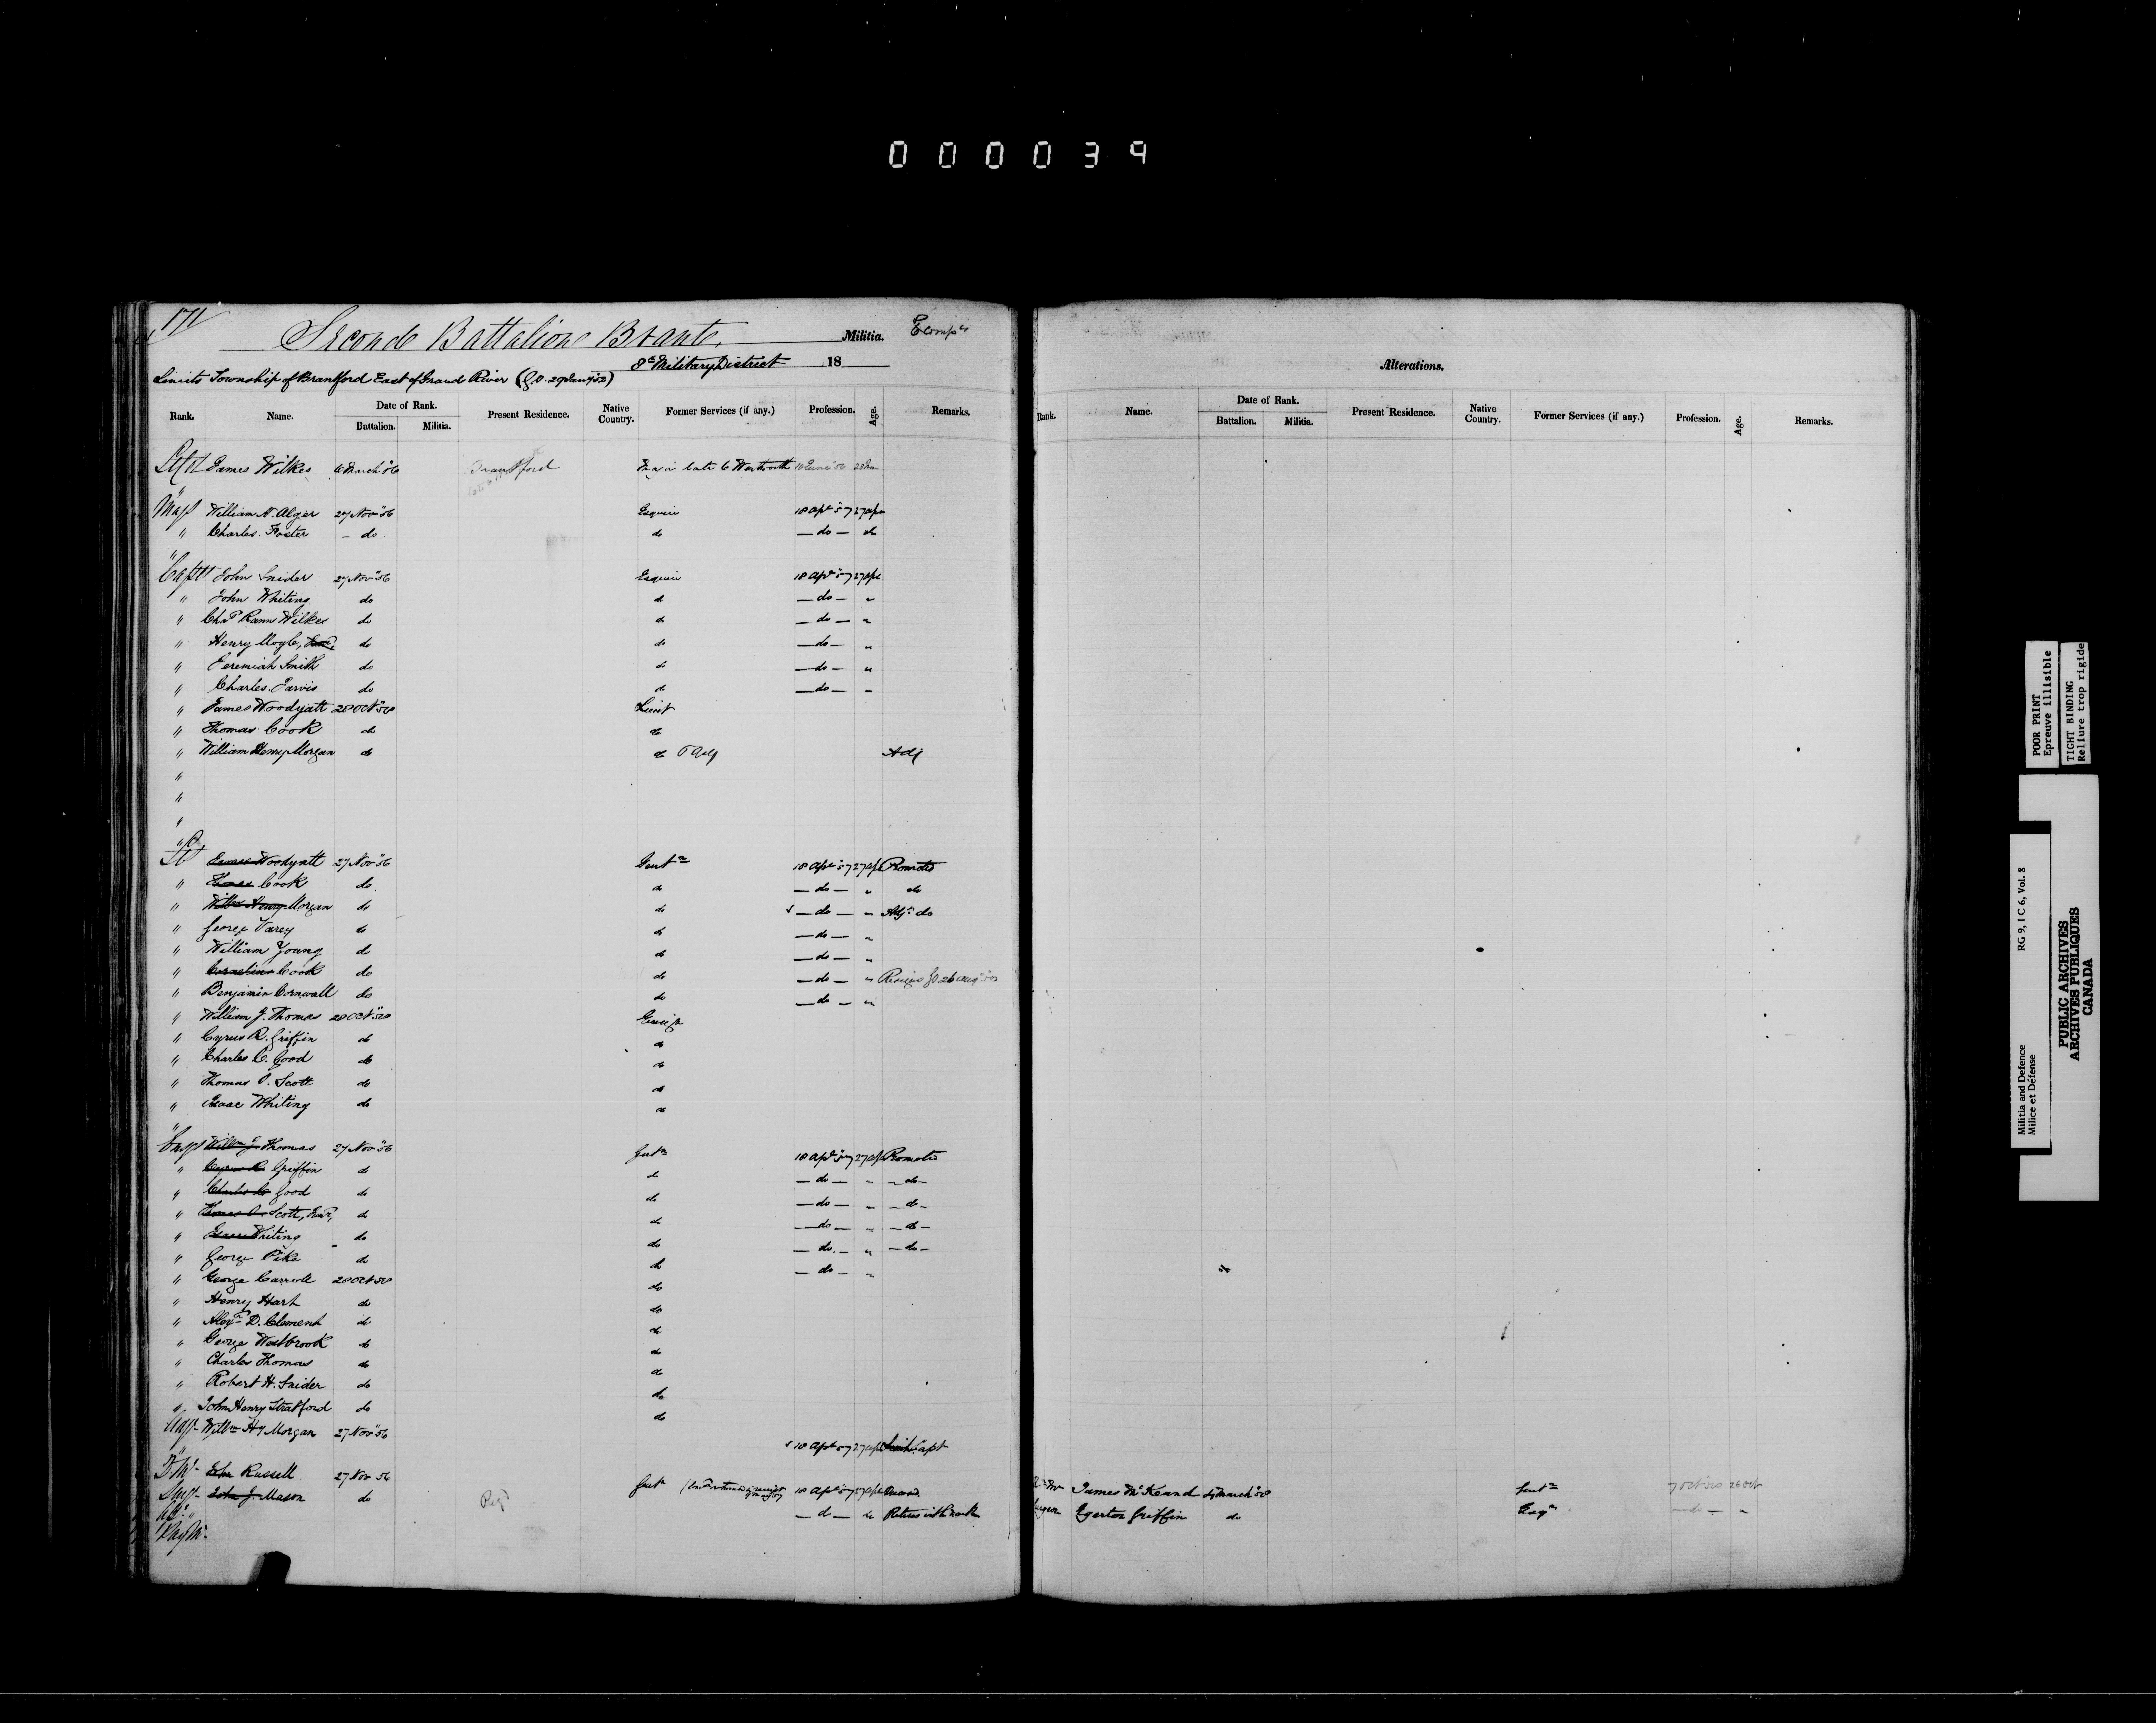 000039
171
Second Battalion Brant, Militia.
8th Military District 18
Limits Township of Brantford East of Grand River (G.O. 29 Jany 52)
Rank. Name. Date of Rank. Battalion. Militia. Present Residence. Native Country. Former Services (if any.) Profession. Age. Remarks.
Lt Col James Wilkes 6 March 56 Brantford late 6 Wentworth
Maj William N. Alger 27 Nov 56 Esquire 18 Apl 57 27 Apl
" Charles Foster - do do - do - do
Capt John Snider 27 Nov 56 Esquire 18 Apl 57 27 Apl
" John Whiting do do - do - "
" Chas Rann Wilkes do do - do - "
" Henry Moyle, Junr do do - do - "
" Jeremiah Smith do do - do - "
" Charles Jarvis do do - do - "
" James Woodyatt 28 Oct 58 Lieut
" Thomas Cook do do
" William Henry Morgan do do & Adj Adj
"
"
"
"
Lt James Woodyatt 27 Nov 56 Gentn 18 Apl 57 27 Apl Promoted
" Thomas Cook do do - do - " do
" Willm Henry Morgan do do - do - " Adjt do
" George Varey do do - do - "
" William Young do do - do - "
" Cornelius Cook do do - do - " Resigns GO 26
" Benjamin Cornwall do do - do - "
" William J. Thomas 28 Oct 58 Ensign
" Cyrus R. Griffin do do
" Charles C. Good do do
" Thomas O. Scott do do
" Isaac Whiting do do
"
Ensn Willm J. Thomas 27 Nov 56 Gentn 18 Apl 57 27 Apl Promoted
" Cyrus R. Griffin do do - do - " - do -
" Charles C. Good do do - do - " - do -
" Thomas O. Scott, Junr, do do - do - " - do -
" Isaac Whiting do do - do - " - do -
" George Pike do do - do - "
" George Carroll 28 Oct 58 do
" Henry Hart do do
" Alexr D. Clement do do
" George Westbrook do do
" Charles Thomas do do
" Robert H. Snider do do
" John Henry Stratford do do
Adjt Willm Hy Morgan 27 Nov 56 18 Apl 57 27 Apl Lieut Capt
Q M Russell 27 Nov 56 Gent 18 Apl 57 27 Apl
Surgn John J. Mason do - do - do Retires with rank
" "
Pay Mr
Alterations.
Rank. Name. Date of Rank. Battalion. Militia. Present Residence. Native Country. Former Services (if any.) Profession. Age. Remarks.
Qr Mr James McKeand March 58 Gentn 7 Oct 58 26 Oct
Surgeon Egerton Griffin do Esqr - do - "
POOR PRINT
Epreuve illisible
TIGHT BINDING
Reliure trop rigide
Militia and Defence RG 9, I C 6, Vol. 8
Milice et Défense
PUBLIC ARCHIVES
ARCHIVES PUBLIQUES
CANADA